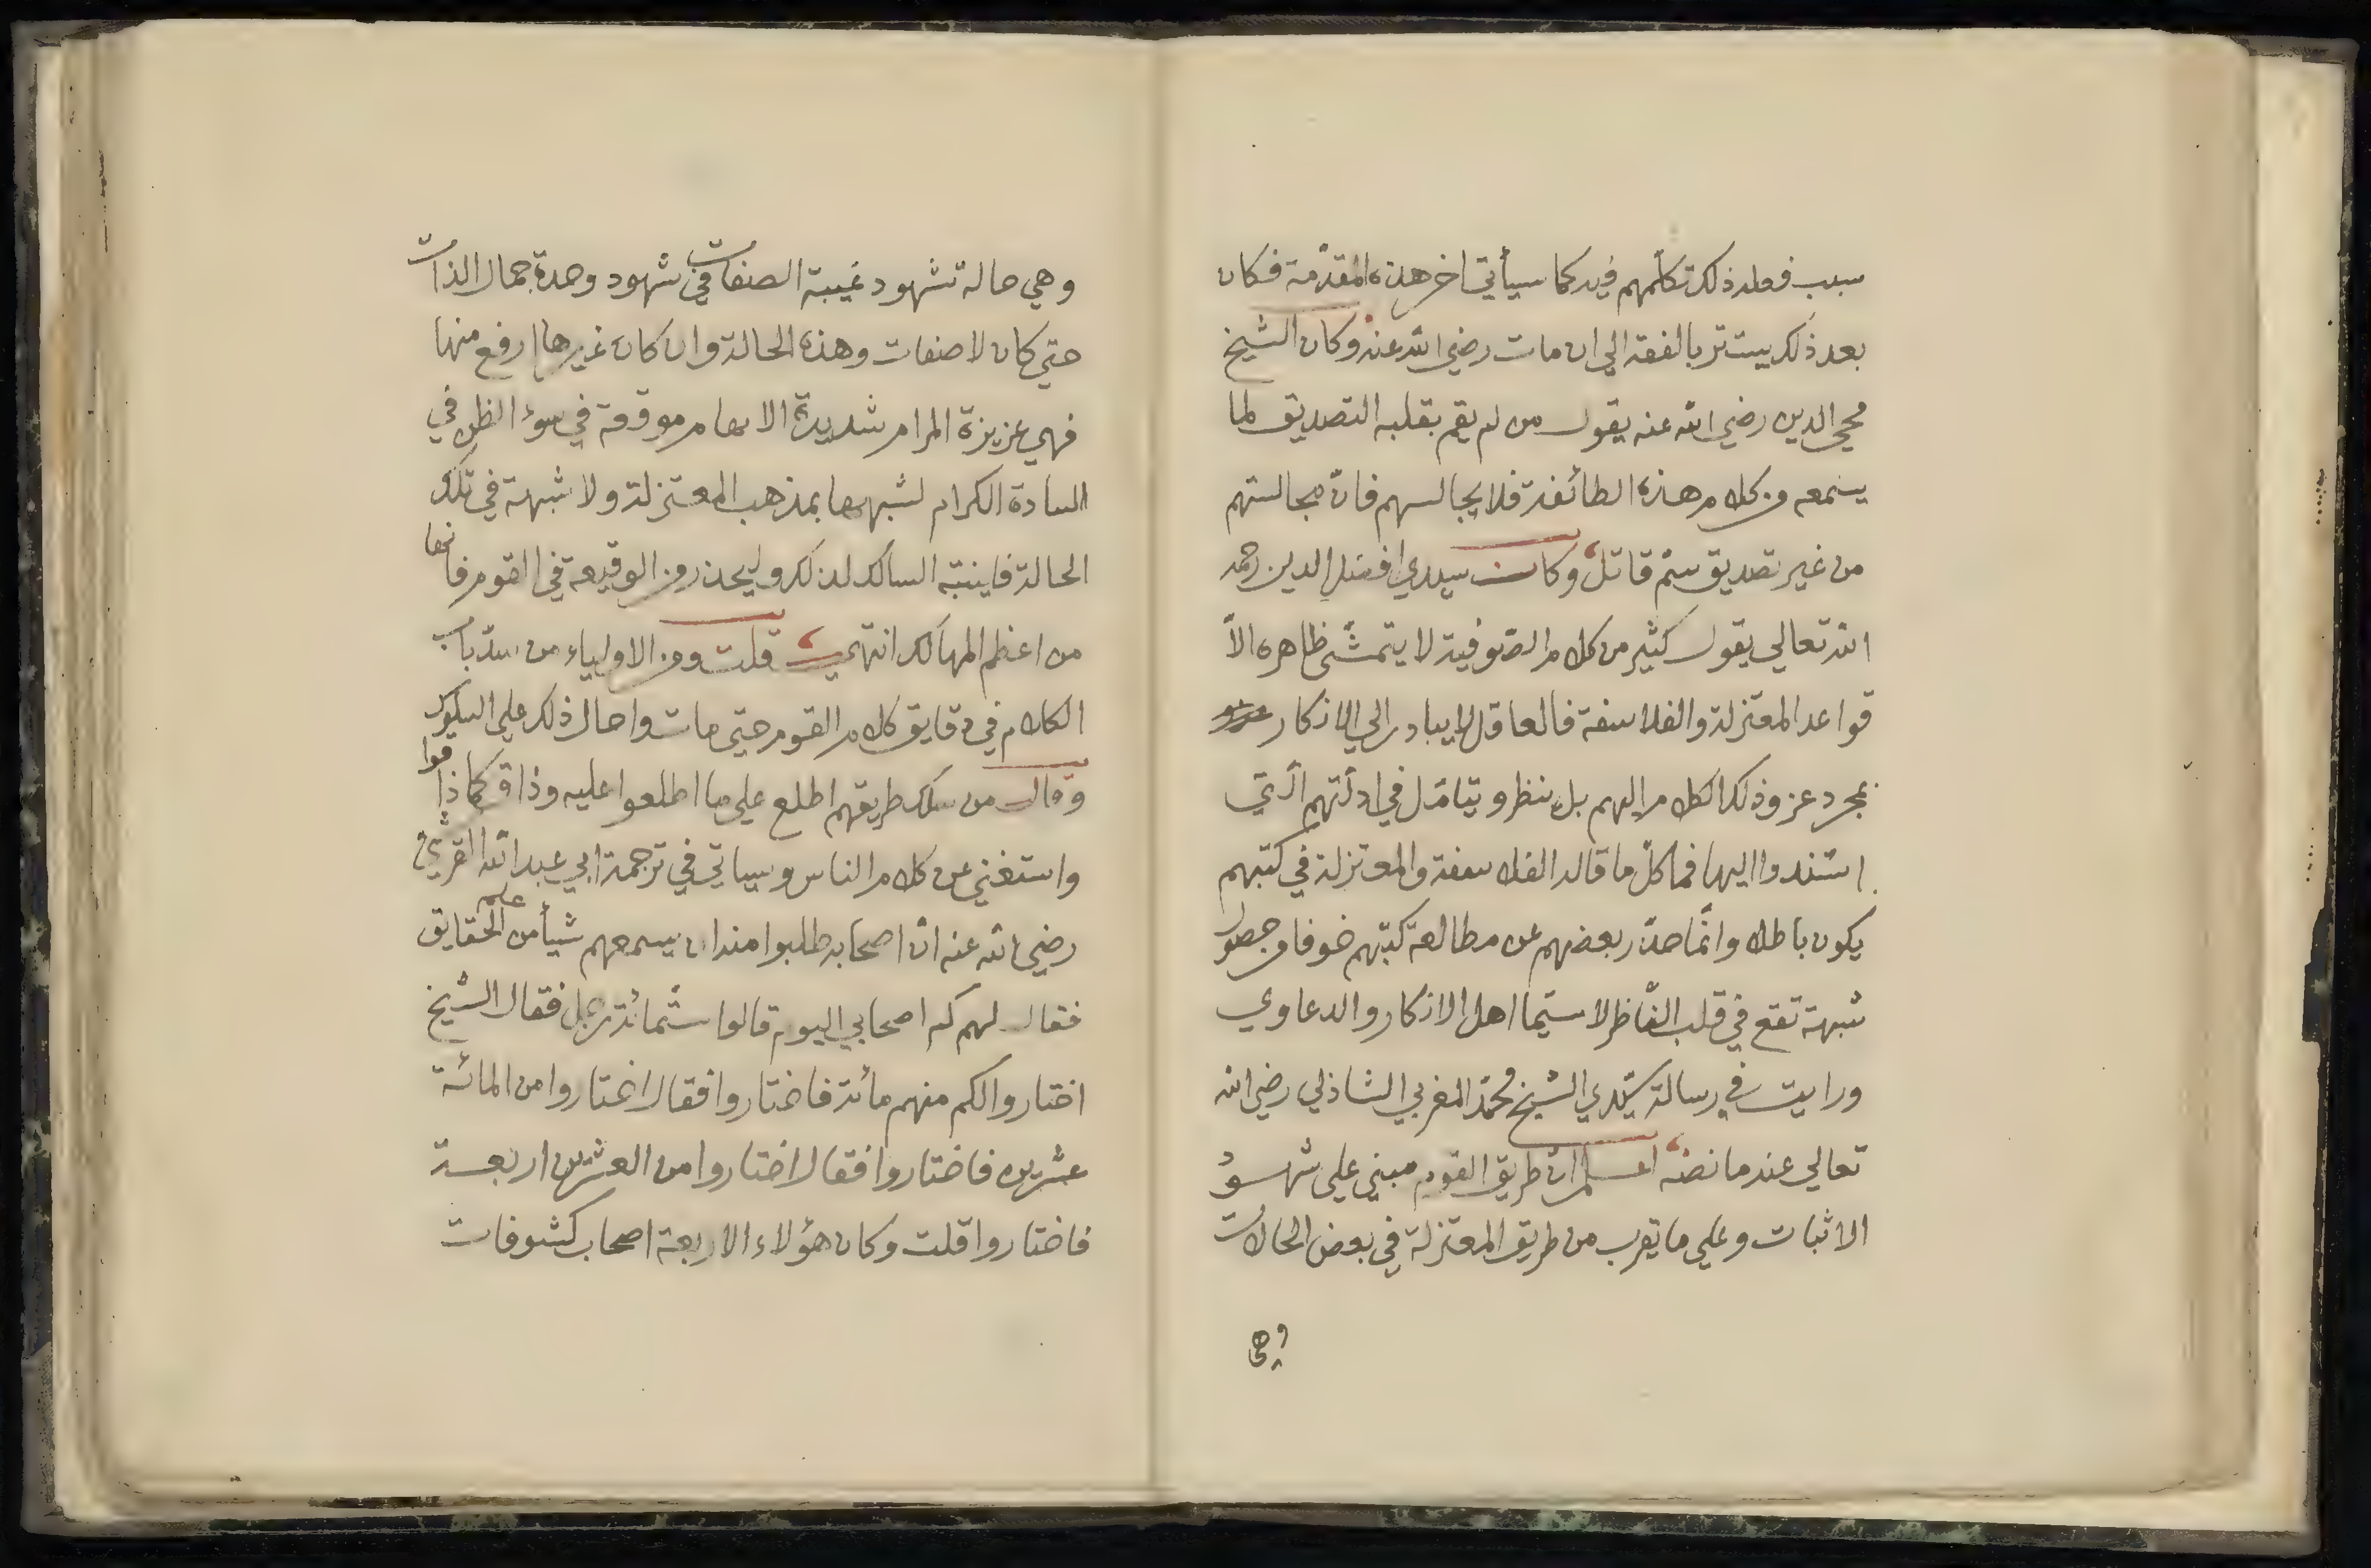 سبب فعله ذلك تكلمهم فيه كما سيأتي اخر هذه المقدّمة فكان
بعد ذلك يستتر بالفقه الي ان مات رضي الله عنه وكان الشيخ
محي الدين رضي الله عنه يقول من لم يقم بقلبه التصديق لما
يسمعه من كلام هذه الطائفة فلا يجالسهم فانّ مجالستهم
من غير تصديق سمّ قاتل وكان سيدي افضل الدين رحمه
الله تعالي يقول كثير من كلام الصّوفية لا يتمشّي ظاهره الاّ
قواعد المعتزلة والفلاسفة فالعاقل لا يبادر الي الانكار
بمجرد عزو ذلك الكلام اليهم بل ينظر ويتامّل في ادلّتهم الّتي
استندوا اليها فما كلّ ما قاله الفلاسفة والمعتزلة في كتبهم
يكون باطلا وانّما حذّر بعضهم عن مطالعة كتبهم خوفا من حصول
شبهة تقع في قلب النّاظر لا سيّما اهل الانكار والدعاوي
ورايت في رسالة سيّدي الشيخ محمّد المغربي الشاذلي رضي الله
تعالي عنه ما نصّه اعلم انّ طريق القوم مبني علي شهود
الاثبات وعلي ما يقرب من طريق المعتزلة في بعض الحالات
وهي
وهي حالة شهود غيبة الصفات في شهود وحدة جمال الذات
حتي كان لا صفات وهذه الحالة وان كان غيرها ارفع منها
فهي عزيزة المرام شديدة الابهام موقعة في سوء الظن في
السادة الكرام لشبهها بمذهب المعتزلة ولا شبهة في تلك
الحالة فلينتبه السالك لذلك وليحذر من الوقيعة في القوم فانها
من اعظم المهالك انتهي قلت ومن الاولياء من سدّ باب
الكلام في دقايق كلام القوم حتي مات واحال ذلك علي السلوك
وقال من سلك طريقهم اطلع علي ما اطلعوا عليه وذاق كما ذاقوا
واستغني عن كلام الناس وسياتي في ترجمة ابي عبد الله القرشي
رضي الله عنه انّ اصحابه طلبوا منه ان يسمعهم شيأ من علم الحقايق
فقال لهم كم اصحابي اليوم قالوا ستّمائة رجل فقال الشيخ
اختاروا لكم منهم مائة فاختاروا فقال اختاروا من المائة
عشرين فاختاروا فقال اختاروا من العشرين اربعة
فاختاروا قلت وكان هؤلاء الاربعة اصحاب كشوفات